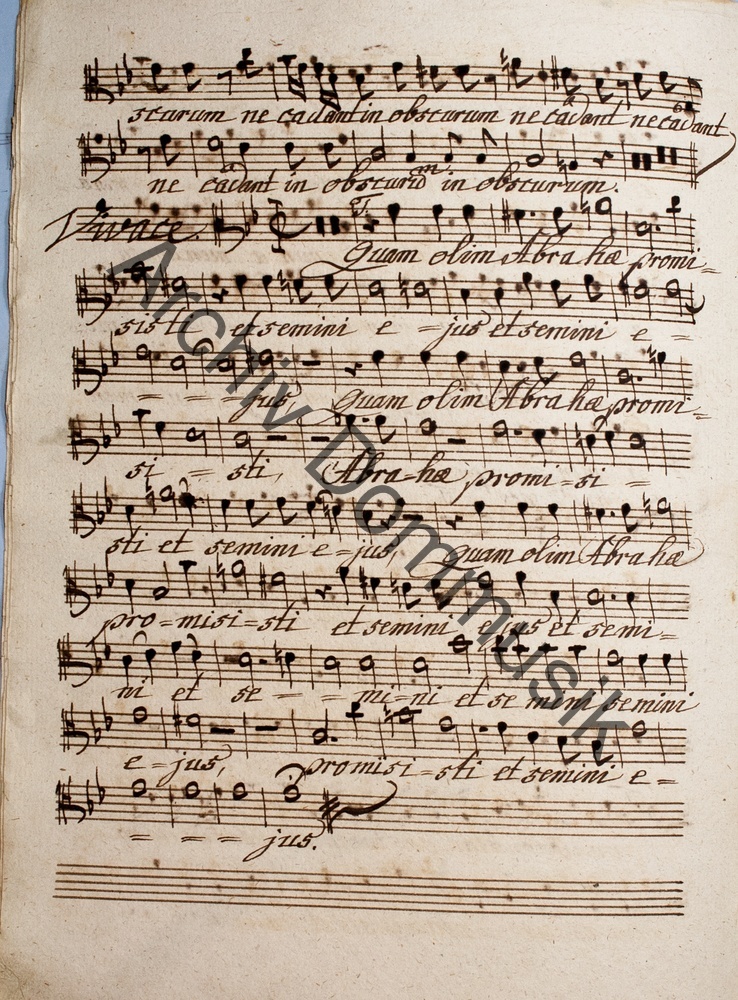 sturum ne cadant in obscurum ne cadant ne cadant
ne cadant in obscurũm in obscurum.
Vivace.
T.
Quam olim Abra hæ promi=
sisti et semini e =jus et semini e =
= = = jus Quam olim Abra hæ promi=
si = sti, Abra=hæ promi=si =
sti et semini e=jus, quam olim Abra hæ
pro=misi=sti et semini ejus et semi=
ni et se = = mi=ni et se mini semini
e=jus, promisi=sti et semini e=
= = = jus.
Archiv Dommusik